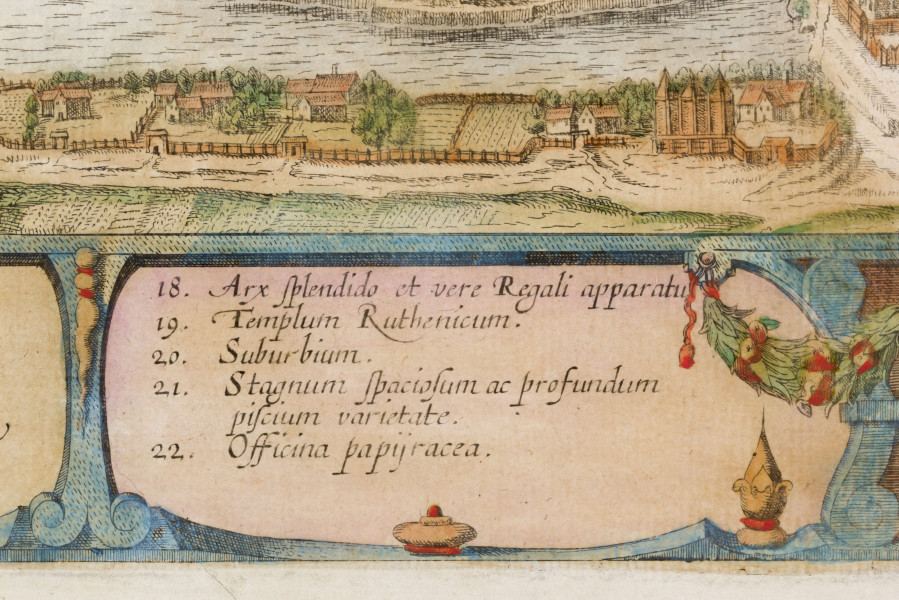 18. Arx splendido et vere Regali apparatu
19. Templum Ruthenicum.
20. Suburbium.
21. Stagnum spaciosum ac profundum
piscium varietate.
22. Officina papijracea.